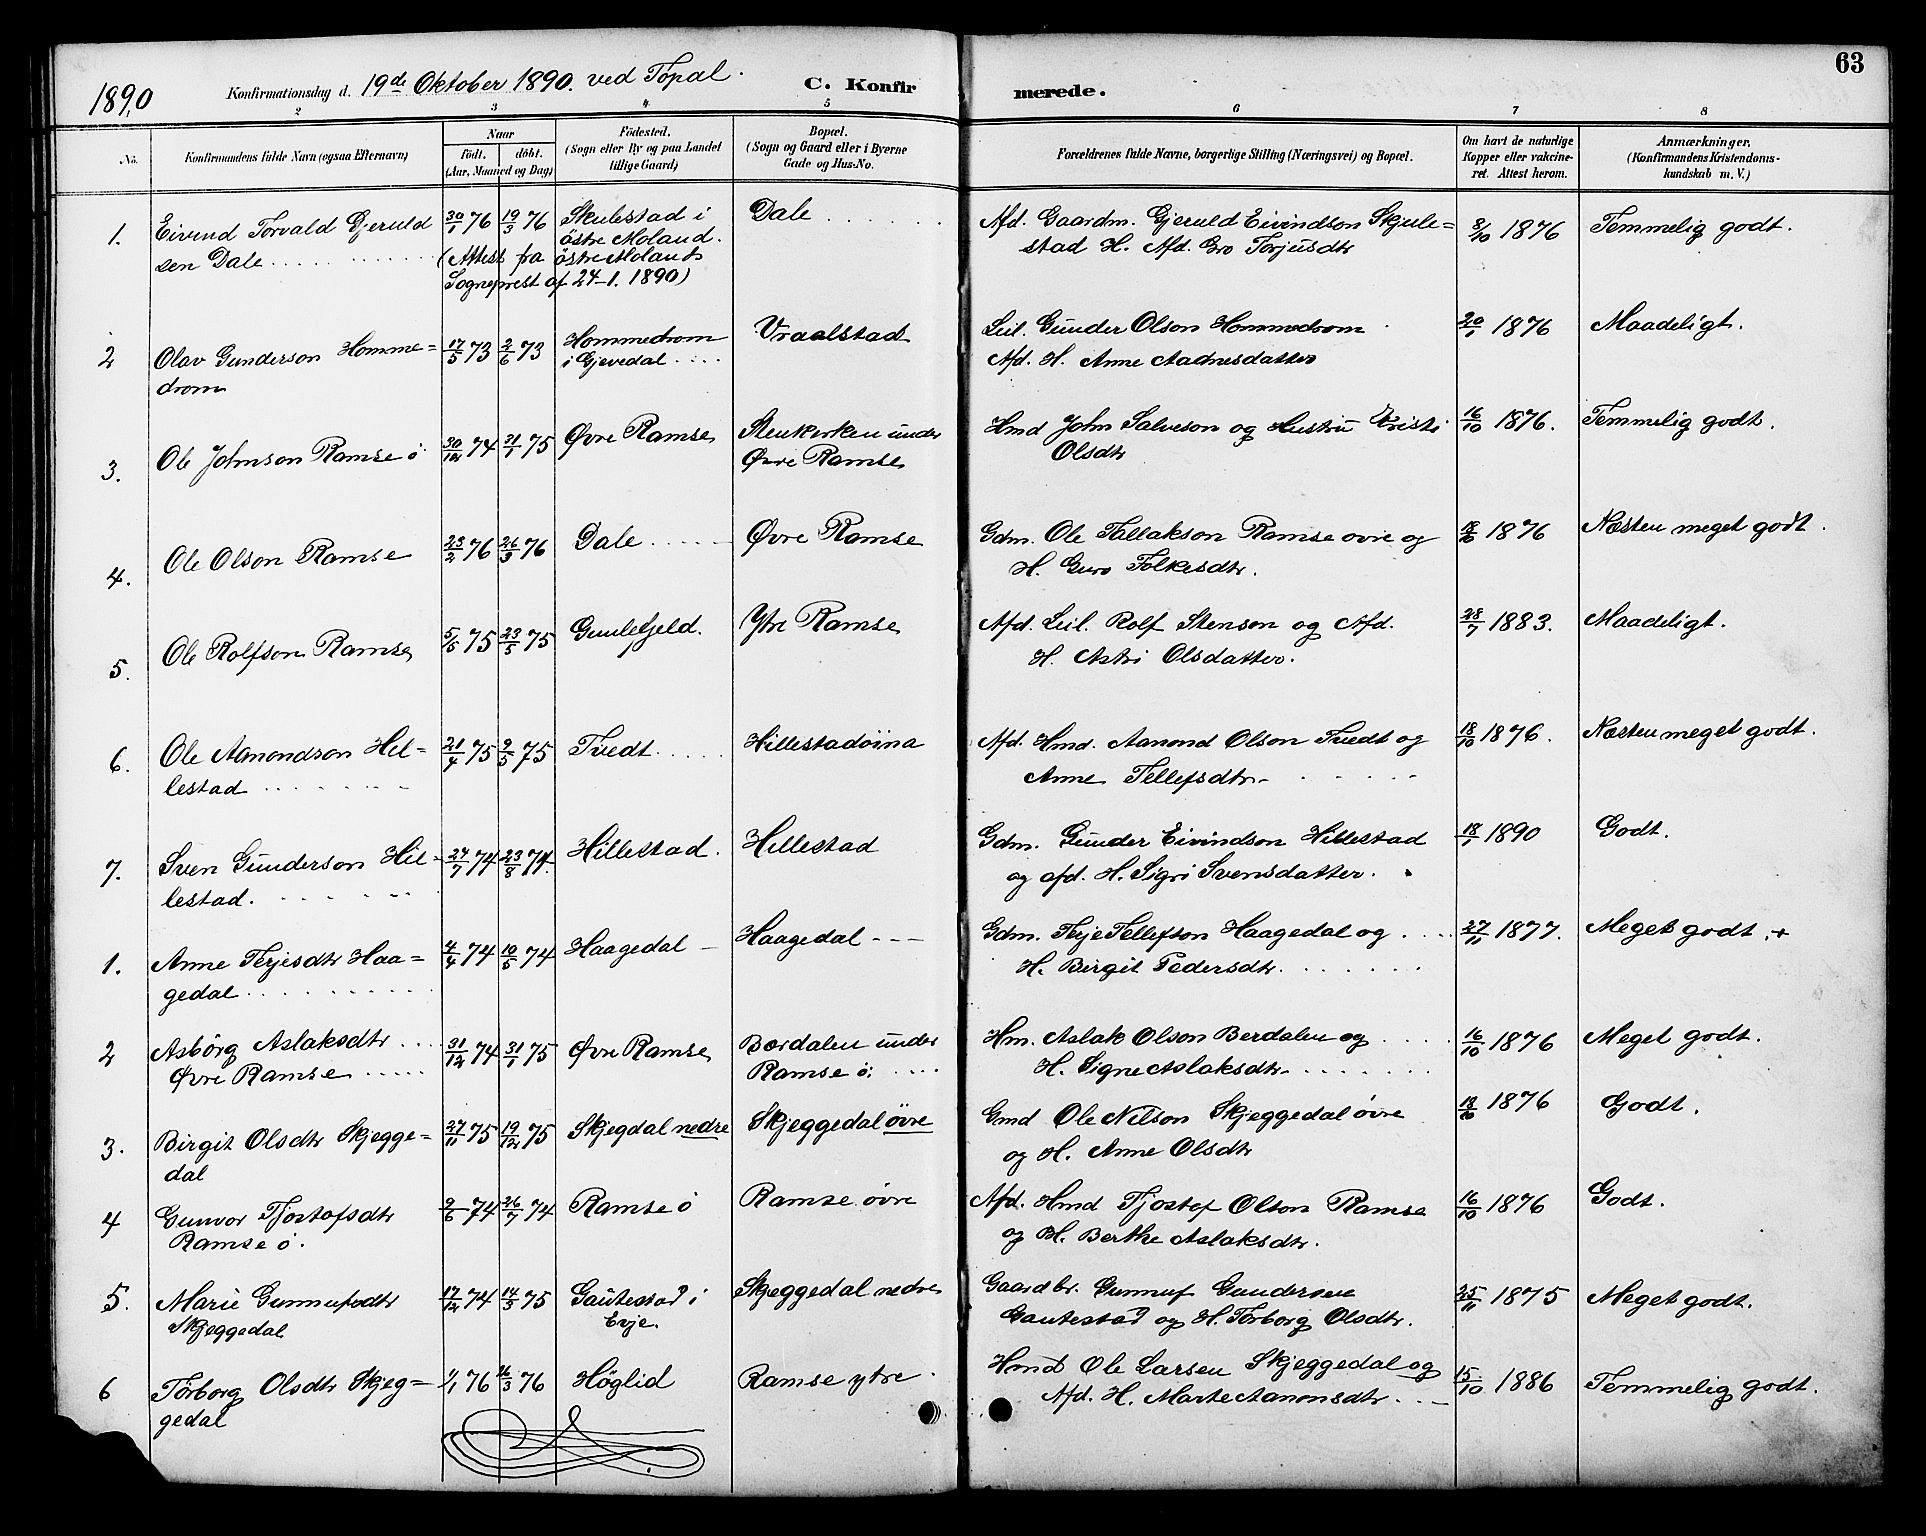 63
1890
Konfirmationsdag d. 19de Oktober 1890. ved Topal.
C. Konfirmerede.
2 3 4 5 6 7 8
No.
Konfirmandens fulde Navn (ogsaa Efternavn)
Naar
födt. döbt.
(Aar, Maaned og Dag)
Födested.
(Sogn eller By og paa Landet
tillige Gaard)
Bopæl.
(Sogn og Gaard eller i Byerne
Gade og Hus-No.
Forældrenes fulde Navne, borgerlige Stilling (Næringsvei) og Bopæl.
Om havt de naturlige
Kopper eller vakcine-
ret. Attest herom.
Anmærkninger.
(Konfirmandens Kristendoms-
kundskab m. V.)
1. Eivind Torvald Gjeruld 30/1 76 19/3 76 Skulestad i Dale Afd. Gaardm. Gjeruld Eivindson Skjule= 8/10 1876 Temmelig godt.
sen Dale östre Moland. stad H. Afd. Gro Torjusdtr
(Attest fra östre Molands
Sogneprest af 24-1. 1890)
2 Olav Gunderson Homme= 17/5 73 2/6 73 Hommedrom Vraalstad Leil. Gunder Olson Hommedrom 20/1 1876 Maadeligt.
drom i Gjevedal Afd. H. Anne Aadnesdatter
3. Ole Johnson Ramse ö 30/12 74 31/1 75 Øvre Ramse Stenkirken under Hmd John Salveson og Hustru Kristi 16/10 1876. Temmelig godt.
Øvre Ramse Olsdtr
4. Ole Olson Ramse 23/2 76 26/3 76 Dale Øvre Ramse Gdm. Ole Tallakson Ramse ovre og 18/10 1876 Næsten meget godt.
H. Guro Folkesdtr.
5. Ole Rolfson Ramse 5/5 75 23/5 75 Gunlefjeld. Ytre Ramse Afd. Leil. Rolf Stenson og Afd. 28/7 1883. Maadeligt.
H. Astri Olsdatter.
6. Ole Aamondson Hil= 21/4 75 9/5 75 Tvedt Hillestadöina Afd. Hmd. Aanond Olson Tvedt og 18/10 1876. Næsten meget godt.
lestad Anne Tellefsdtr
7. Sven Gunderson Hil= 24/7 74 23/8 74. Hillestad. Hillestad Gdm. Gunder Eivindson Hillestad 18/1 1890 Godt.
lestad. og afd. H. Sigri Svensdatter.
1. Anne Terjesdtr Haa= 4/4 74 10/5 74 Haagedal Haagedal Gdm. Terje Tellefson Haagedal og 27/11 1877. Meget godt. +
gedal H. Birgit Pedersdtr.
2 Asbörg Aslaksdtr 31/12 74 31/1 75 Øvre Ramse Bordalen under Hm. Aslak Olson Berdalen og 16/10 1876 Meget godt.
Øvre Ramse Ramse ö. H. Signe Aslaksdtr
3. Birgit Olsdtr Skjegge= 27/11 75 19/12 75 Skjegdal nedre Skjeggedal övre Gmd Ole Nilson Skjeggedal övre 18/10 1876 Godt.
dal og H. Anne Olsdtr
4 Gunvor Tjostofsdtr 9/6 74 26/7 74 Ramse ö Ramse övre Afd. Hmd Tjostof Olson Ramse 16/10 1876 Godt.
Ramse ö. og H. Berthe Aslaksdtr.
5. Marie Gunnufsdtr 17/12 74 14/3 75 Gautestad i Skjeggedal nedre Gaardbr. Gunnuf Gundersen 25/11 1875 Meget godt.
Skjeggedal Evje. Gautestad og H. Torborg Olsdtr.
6 Törborg Olsdtr Skjeg= 1/1 76 /3 76 Höglid Ramse ytre Hmd Ole Larsen Skjeggedal og 15/10 1886 Temmelig godt.
gedal Afd. H. Marte Aanonsdtr.